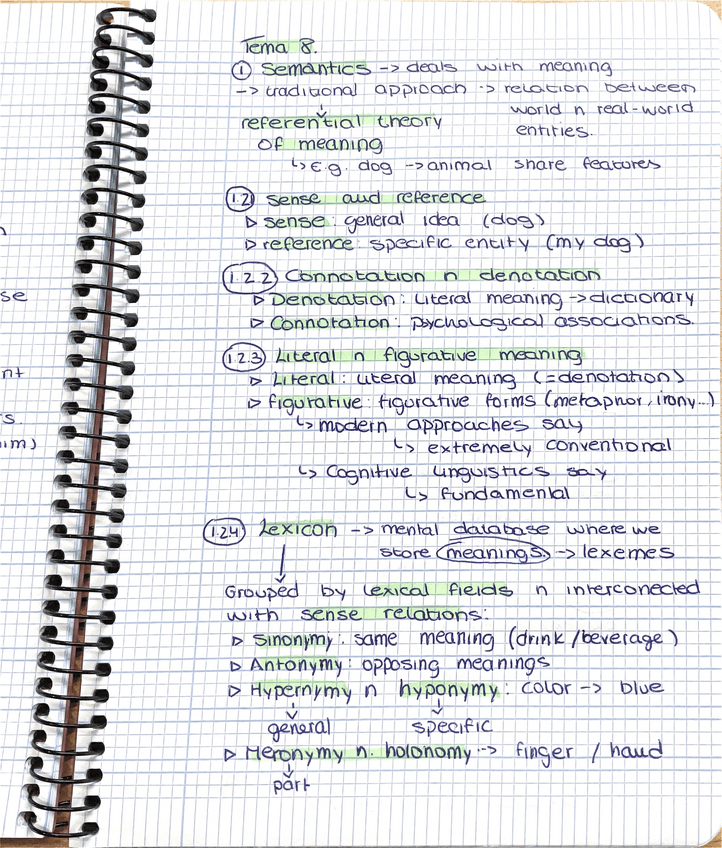 se
nt
s.
im)
Tema 8.
① Semantics -> deals with meaning
-> traditional approach -> relation between
world n real-world
entities.
referential theory
of meaning
↳ E.g. dog -> animal share features
1.2 sense and reference
▷ sense: general idea (dog)
▷ reference: specific entity (my dog)
1.2.2 Connotation n denotation
▷ Denotation: Literal meaning -> dictionary
▷ Connotation: psychological associations.
1.2.3 Literal n figurative meaning
▷ Literal: literal meaning (=denotation)
▷ figurative: figurative forms (metaphor, irony...)
↳ modern approaches say
↳ extremely conventional
↳ Cognitive linguistics say
↳ fundamental
1.2.4 Lexicon -> mental database where we
store meanings. -> lexemes
Grouped by lexical fields n interconected
with sense relations:
▷ Sinonymy: same meaning (drink/beverage)
▷ Antonymy: opposing meanings
▷ Hypernymy n hyponymy: color -> blue
general specific
▷ Meronymy n. holonomy -> finger / hand
part